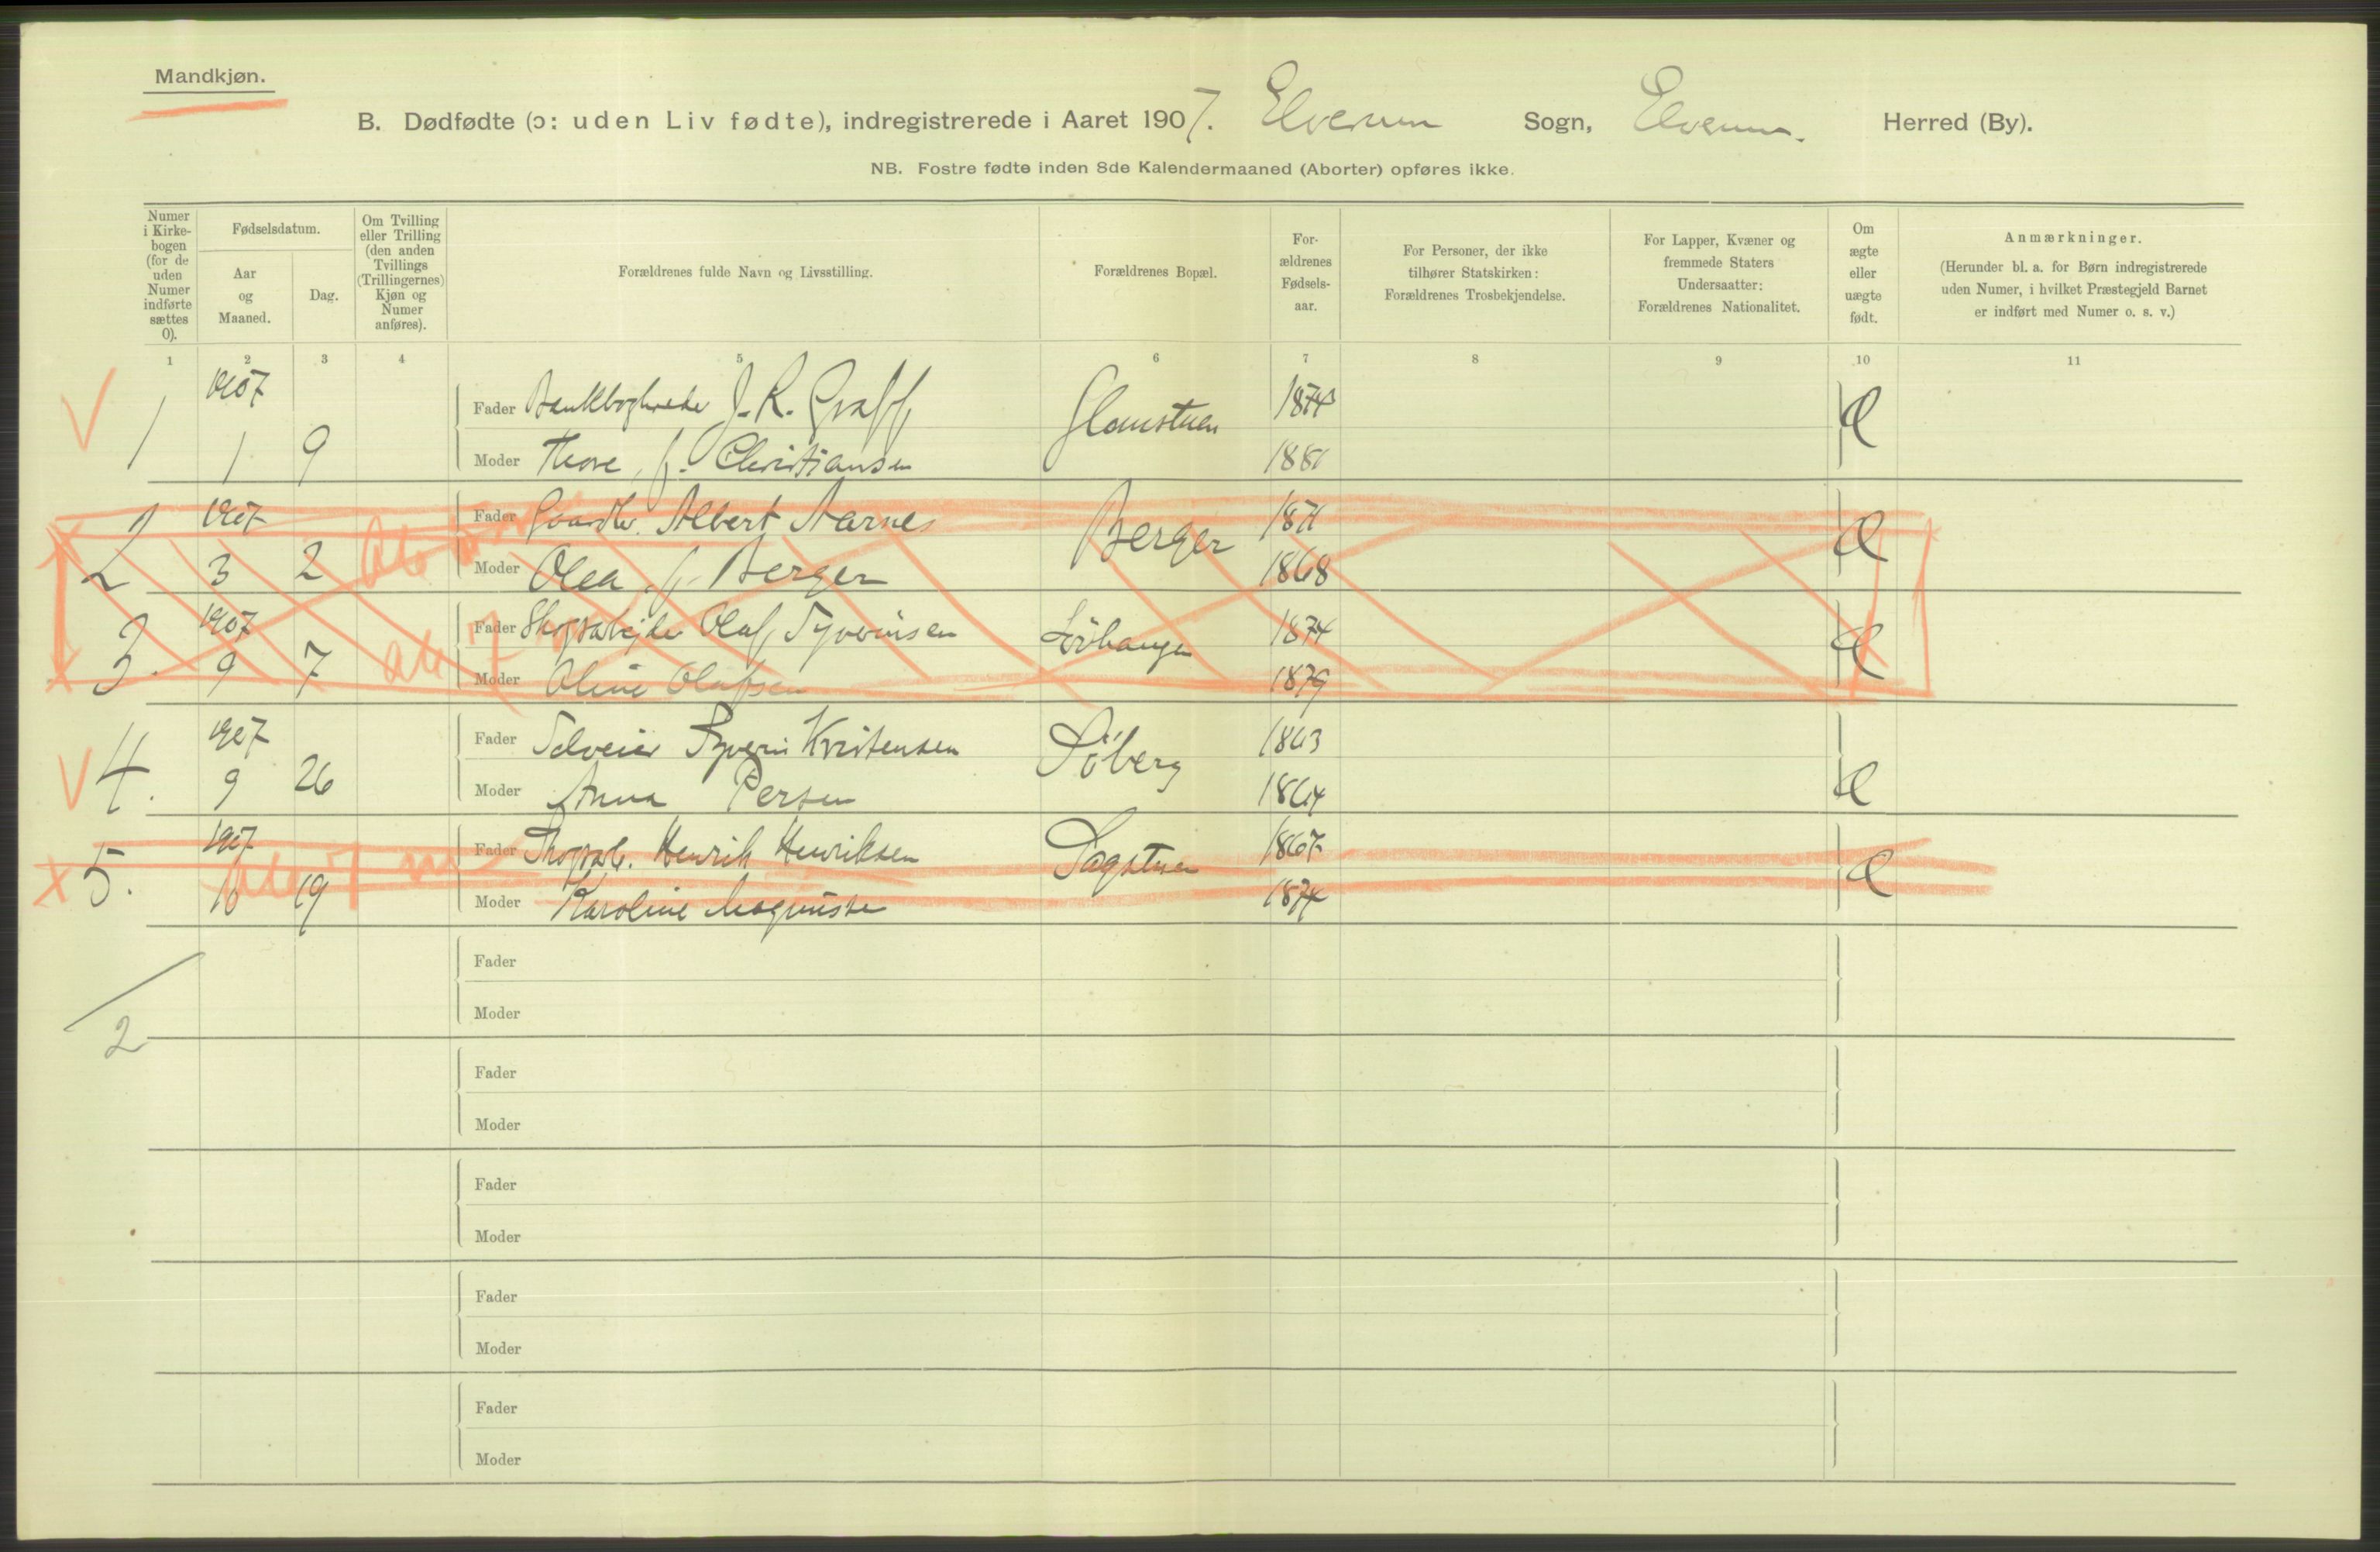 Mandkjøn.
B. Dødfødte (ɔ: uden Liv fødte), indregistrerede i Aaret 1907. Elverum Sogn, Elverum. Herred (By).
NB. Fostre fødte inden 8de Kalendermaaned (Aborter) opføres ikke.
Numer
i Kirke-
bogen
(for de
uden
Numer
indførte
sættes
0).
Fødselsdatum.
Aar
og
Maaned.
Dag.
Om Tvilling
eller Trilling
(den anden
Tvillings
(Trillingernes)
Kjøn og
Numer
anføres).
Forældrenes fulde Navn og Livsstilling.
Forældrenes Bopæl.
For-
ældrenes
Fødsels-
aar.
For Personer, der ikke
tilhører Statskirken:
Forældrenes Trosbekjendelse.
For Lapper, Kvæner og
fremmede Staters
Undersaatter:
Forældrenes Nationalitet.
Om
ægte
eller
uægte
født.
Anmærkninger.
(Herunder bl. a. for Børn indregistrerede
uden Numer, i hvilket Præstegjeld Barnet
er indført med Numer o. s. v.)
1 2 3 4 5 6 7 8 9 10 11
1907
Fader J. K. Graff 1874
1 1 9 Glomstuen Æ
Moder Thore f. Christiansen 1881
1907
Fader Gaardbr. Albert Aarnes 1871
2 3 2 Berger Æ
Moder Olea f. Berger 1868
1907
Fader Skogsarbejder Olaf Syversen 1874
3. 9 7 Æ
Moder Oline Olafsen 1879
1907
Fader Selveier Syver Kristensen 1863
4. 9 26 Söberg Æ
Moder Anna Persen 1864
1907
Fader Skogsarb. Henrik Henriksen 1867
5. 10 19 Sagstuen Æ
Moder Karoline 1874
Fader
Moder
2
Fader
Moder
Fader
Moder
Fader
Moder
Fader
Moder